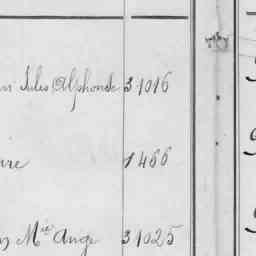 Jules Alphonse 3 1016
ire 1 466
Mie Ange 3 1025